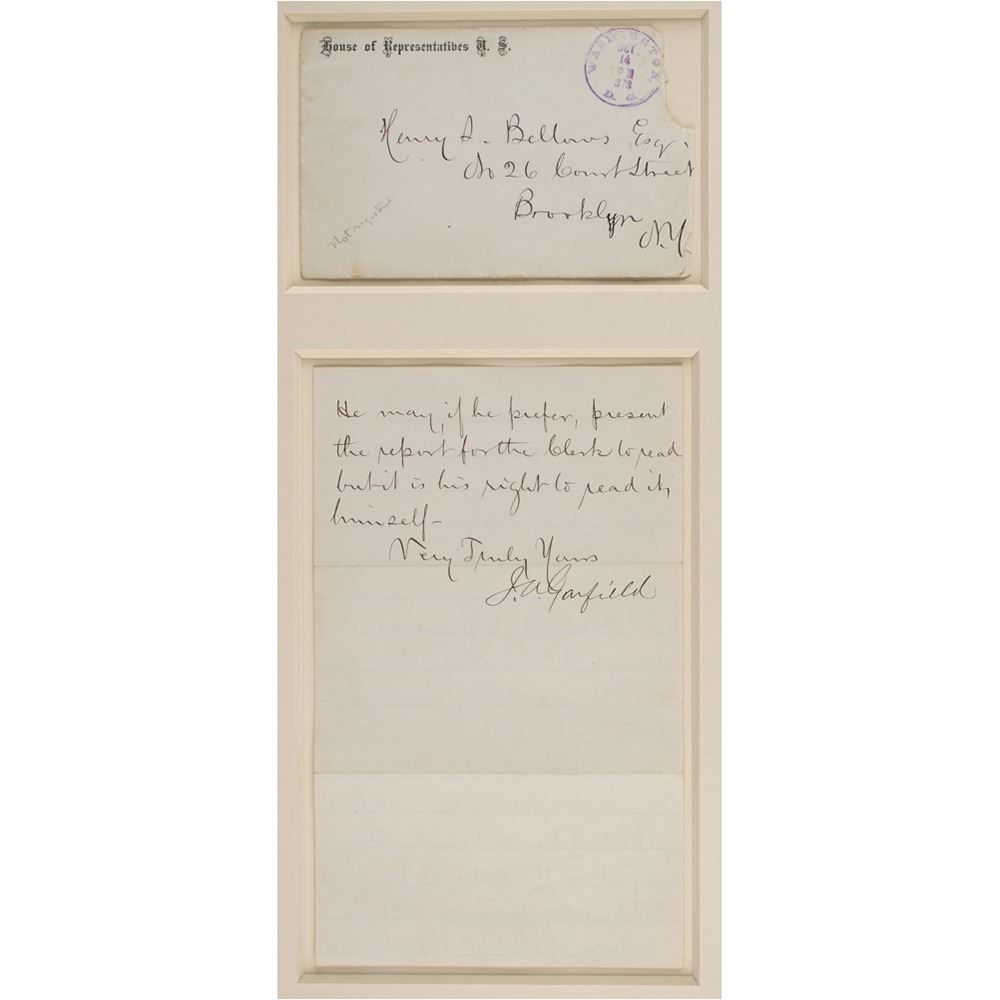 House of Representatives U. S.
WASHINGTON, D. C.
OCT
14
Henry S. Bellows Esq.
No 26 Court Street
Brooklyn
N.Y.
Not registered
He may, if he prefer, present
the report for the Clerk to read
but it is his right to read it,
himself—
Very Truly Yours
J. A. Garfield